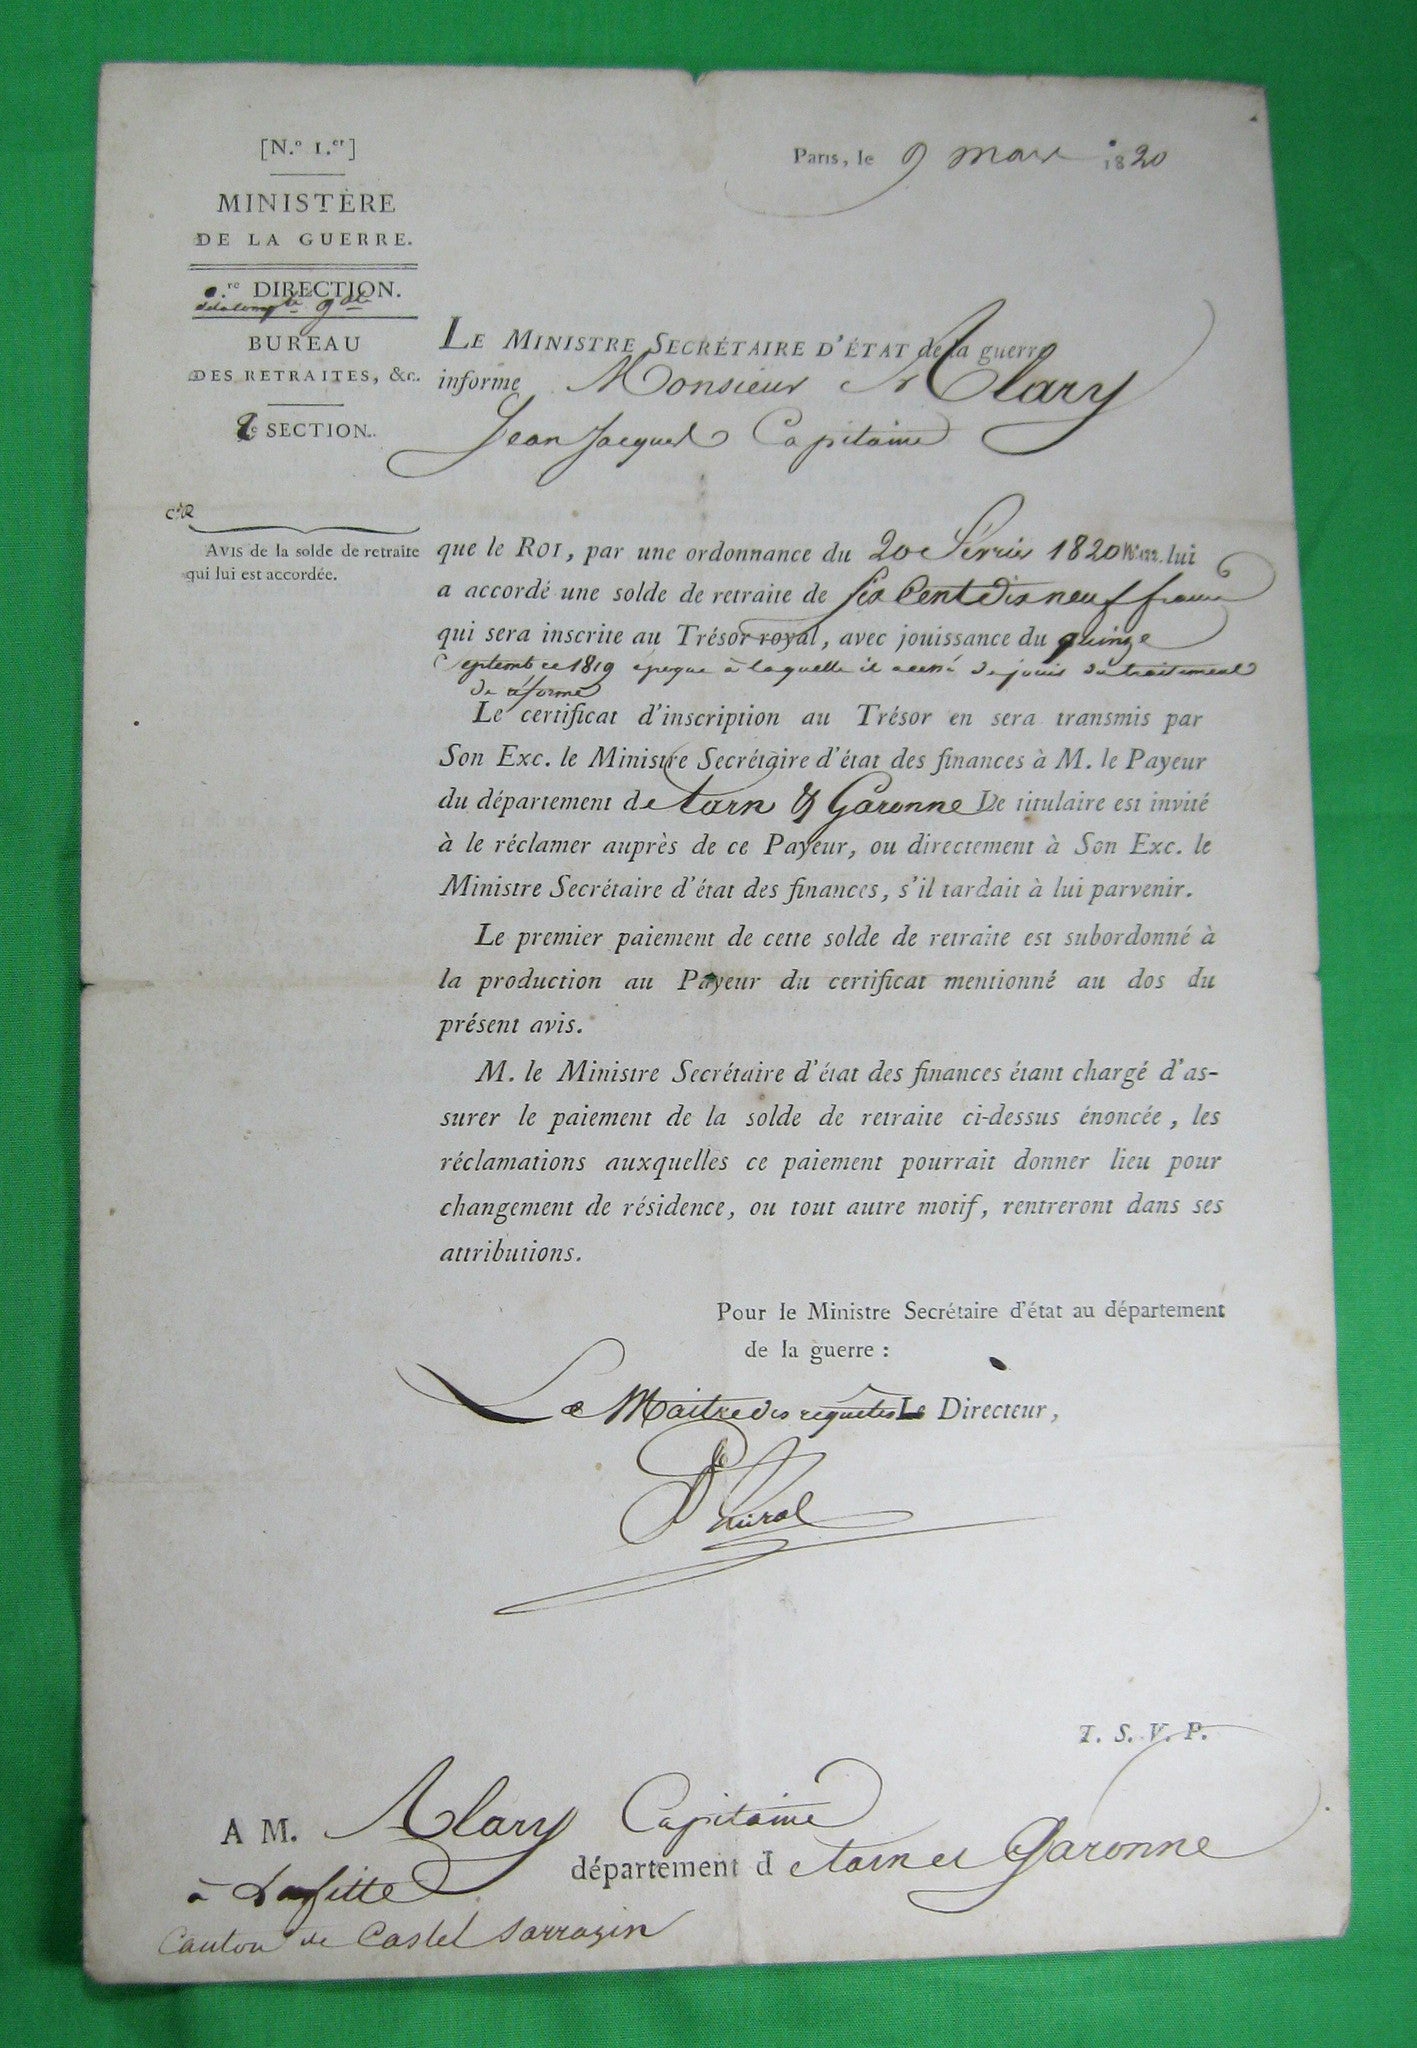 [N.º 1.er]
MINISTÈRE
DE LA GUERRE.
re DIRECTION.
BUREAU
DES RETRAITES, &c.
2e SECTION.
Avis de la solde de retraite
qui lui est accordée.
Paris, le 9 mars 1820
LE MINISTRE SECRÉTAIRE D'ÉTAT de la guerre
informe Monsieur Alary
Jean Jacques Capitaine
que le ROI, par une ordonnance du 20 février 1820 N° 122. lui
a accordé une solde de retraite de Six Cent dix neuf francs
qui sera inscrite au Trésor royal, avec jouissance du quinze
Septembre 1819 époque à laquelle il a cessé de jouir du traitement
de réforme
Le certificat d'inscription au Trésor en sera transmis par
Son Exc. le Ministre Secrétaire d'état des finances à M. le Payeur
du département de tarn & Garonne Le titulaire est invité
à le réclamer auprès de ce Payeur, ou directement à Son Exc. le
Ministre Secrétaire d'état des finances, s'il tardait à lui parvenir.
Le premier paiement de cette solde de retraite est subordonné à
la production au Payeur du certificat mentionné au dos du
présent avis.
M. le Ministre Secrétaire d'état des finances étant chargé d'as-
surer le paiement de la solde de retraite ci-dessus énoncée, les
réclamations auxquelles ce paiement pourrait donner lieu pour
changement de résidence, ou tout autre motif, rentreront dans ses
attributions.
Pour le Ministre Secrétaire d'état au département
de la guerre :
Le Maitre des requêtes Le Directeur,
T. S. V. P.
A M. Alary Capitaine
à Lafitte département de tarn et Garonne
Canton de Castel Sarrazin